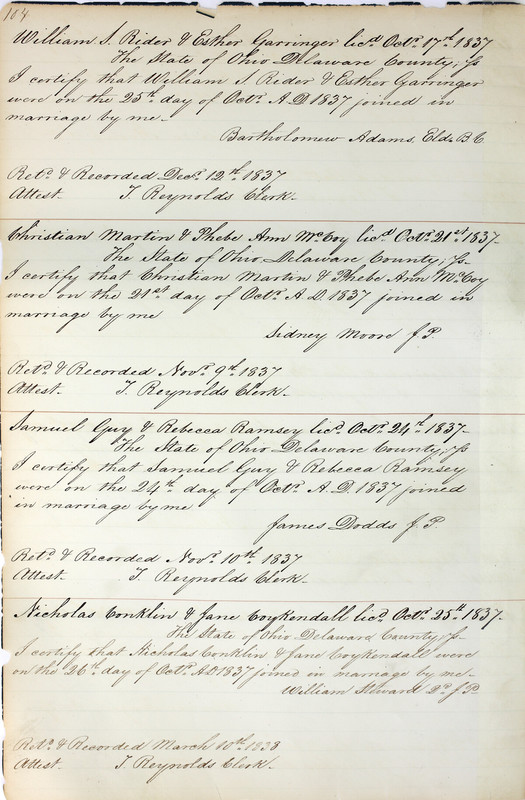 104
William S. Rider & Esther Garringer licd Octr 17th 1837
The State of Ohio Delaware County; Ss
I certify that William S. Rider & Esther Garringer
were on the 25th day of Octr A.D. 1837 joined in
marriage by me
Bartholomew Adams, Eld. B.C.
Retd & Recorded Decr 12th 1837
Attest. T. Reynolds Clerk.
Christian Martin & Phebe Ann McCoy licd Octr 21st 1837
The State of Ohio, Delaware County; Ss.
I certify that Christian Martin & Phebe Ann McCoy
were on the 21st day of Octr A.D. 1837 joined in
marriage by me
Sidney Moore J.P.
Retd & Recorded Novr 9th 1837
Attest. T. Reynolds Clerk.
Samuel Guy & Rebecca Ramsey licd Octr 24th 1837
The State of Ohio Delaware County; Ss
I certify that Samuel Guy & Rebecca Ramsey
were on the 24th day of Octr A.D. 1837 joined
in marriage by me
James Dodds J.P.
Retd & Recorded Novr 10th 1837
Attest. T. Reynolds Clerk.
Nicholas Conklin & Jane Coykendall licd Octr 25th 1837.
The State of Ohio Delaware County; Ss.
I certify that Nicholas Conklin & Jane Coykendall were
on the 26th day of Octr A.D. 1837 joined in marriage by me
William Steward 2d J.P.
Retd & Recorded March 10th 1838
Attest. T. Reynolds Clerk.